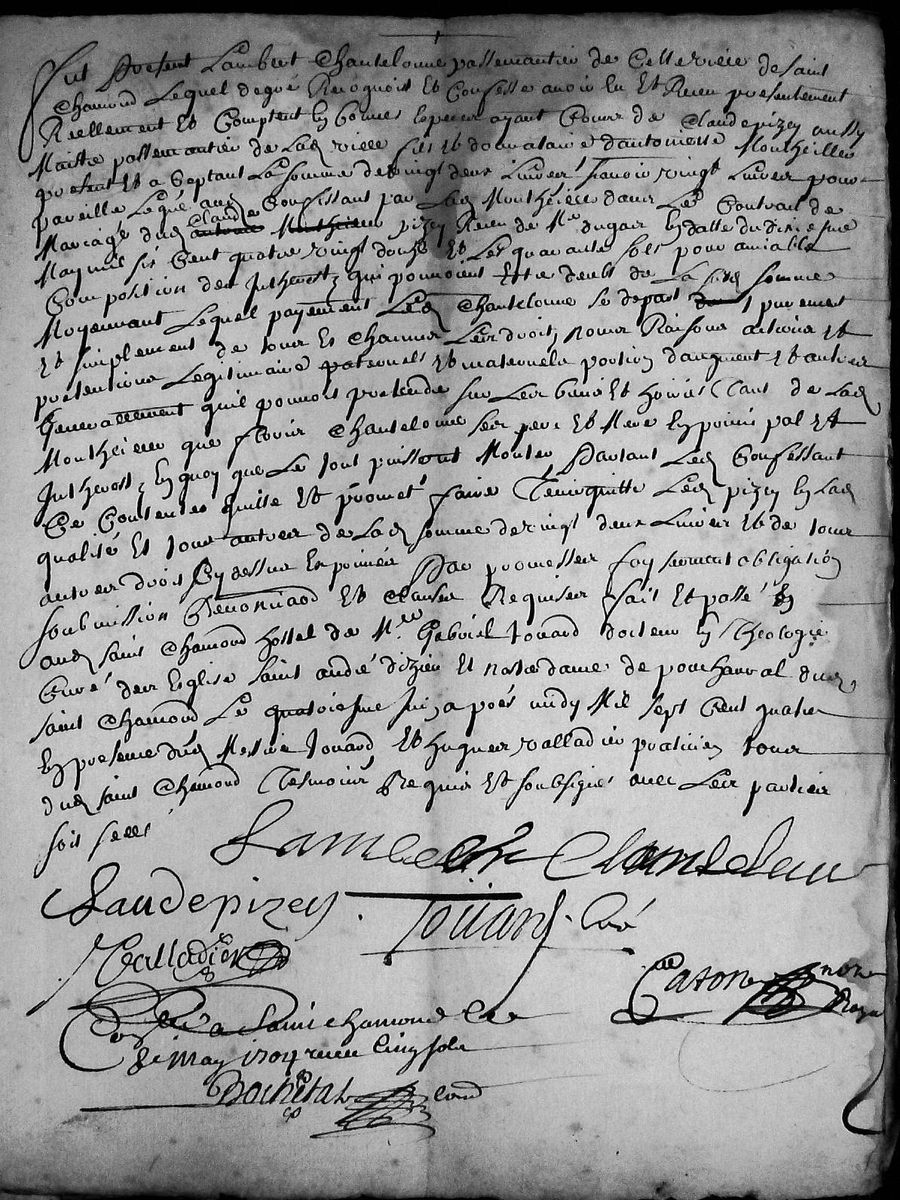 Fut present Lambert Chantelonne passemantier de cette ville de saint
Chamond lequel de gré Reconoist et Confesse avoir eu et Receu presentement
Reellement et Comptent en bonnes especes ayant Cours de Claude pizey aussy
Maitre passemantier de lad ville fils et donnataire d'antoinette Montheillier
present et aceptant la somme de vingt deux livres scavoir vingt livres pour
pareille leguée aud Confessant par lad Montheilere dans le Contrat de
Mariage dud Claude pizey Receu de Me dugas en datte du dixiesme
May mil six Cent quatre vingt douze et les quarante sols pour amiable
Composition des Interests qui pouvoient estre deubt de la somme
Moyennant lequel payement led Chantelonne se depart purement
et simplement de tous et Chacuns les droits noms Raisons actions et
pretentions legitimaire paternels et maternels portion d'augment et autres
Generallement qu'il pouvoit pretendre sur les biens et hoiries tant de lad
Montheilere que Chantelonne ses pere et Mere en principal et
Interests en quoy que le tout puisse Monter Partant led Confessant
Ce Contente quitte et promet faire tenir quitte led pizey en lad
qualité et tous autres de lad somme de vingt deux livres et de tous
autres droits Cy dessus exprimés Par promesses foy serment obligation
soubmission Renonciaon et Clauses Requises fait et passé
aud saint Chamond hostel de Mre Gabriel Jouard docteur en Theologie
Curé des Eglise saint andré d'izieu et nostre dame de dud
saint Chamond le apres midy Mil sept Cent quatre
En presence dud Messire Jouard et hugues valladier praticien tous
dud saint Chamond Tesmoins Requis et soubsignés avec les parties
soit sellé
Lambert Chantelou
Claude pizey
Jouard Curé
Valladier
Caton nore Royal
Conllé a Saint chamond le
8e may 1704 receu cinq sols